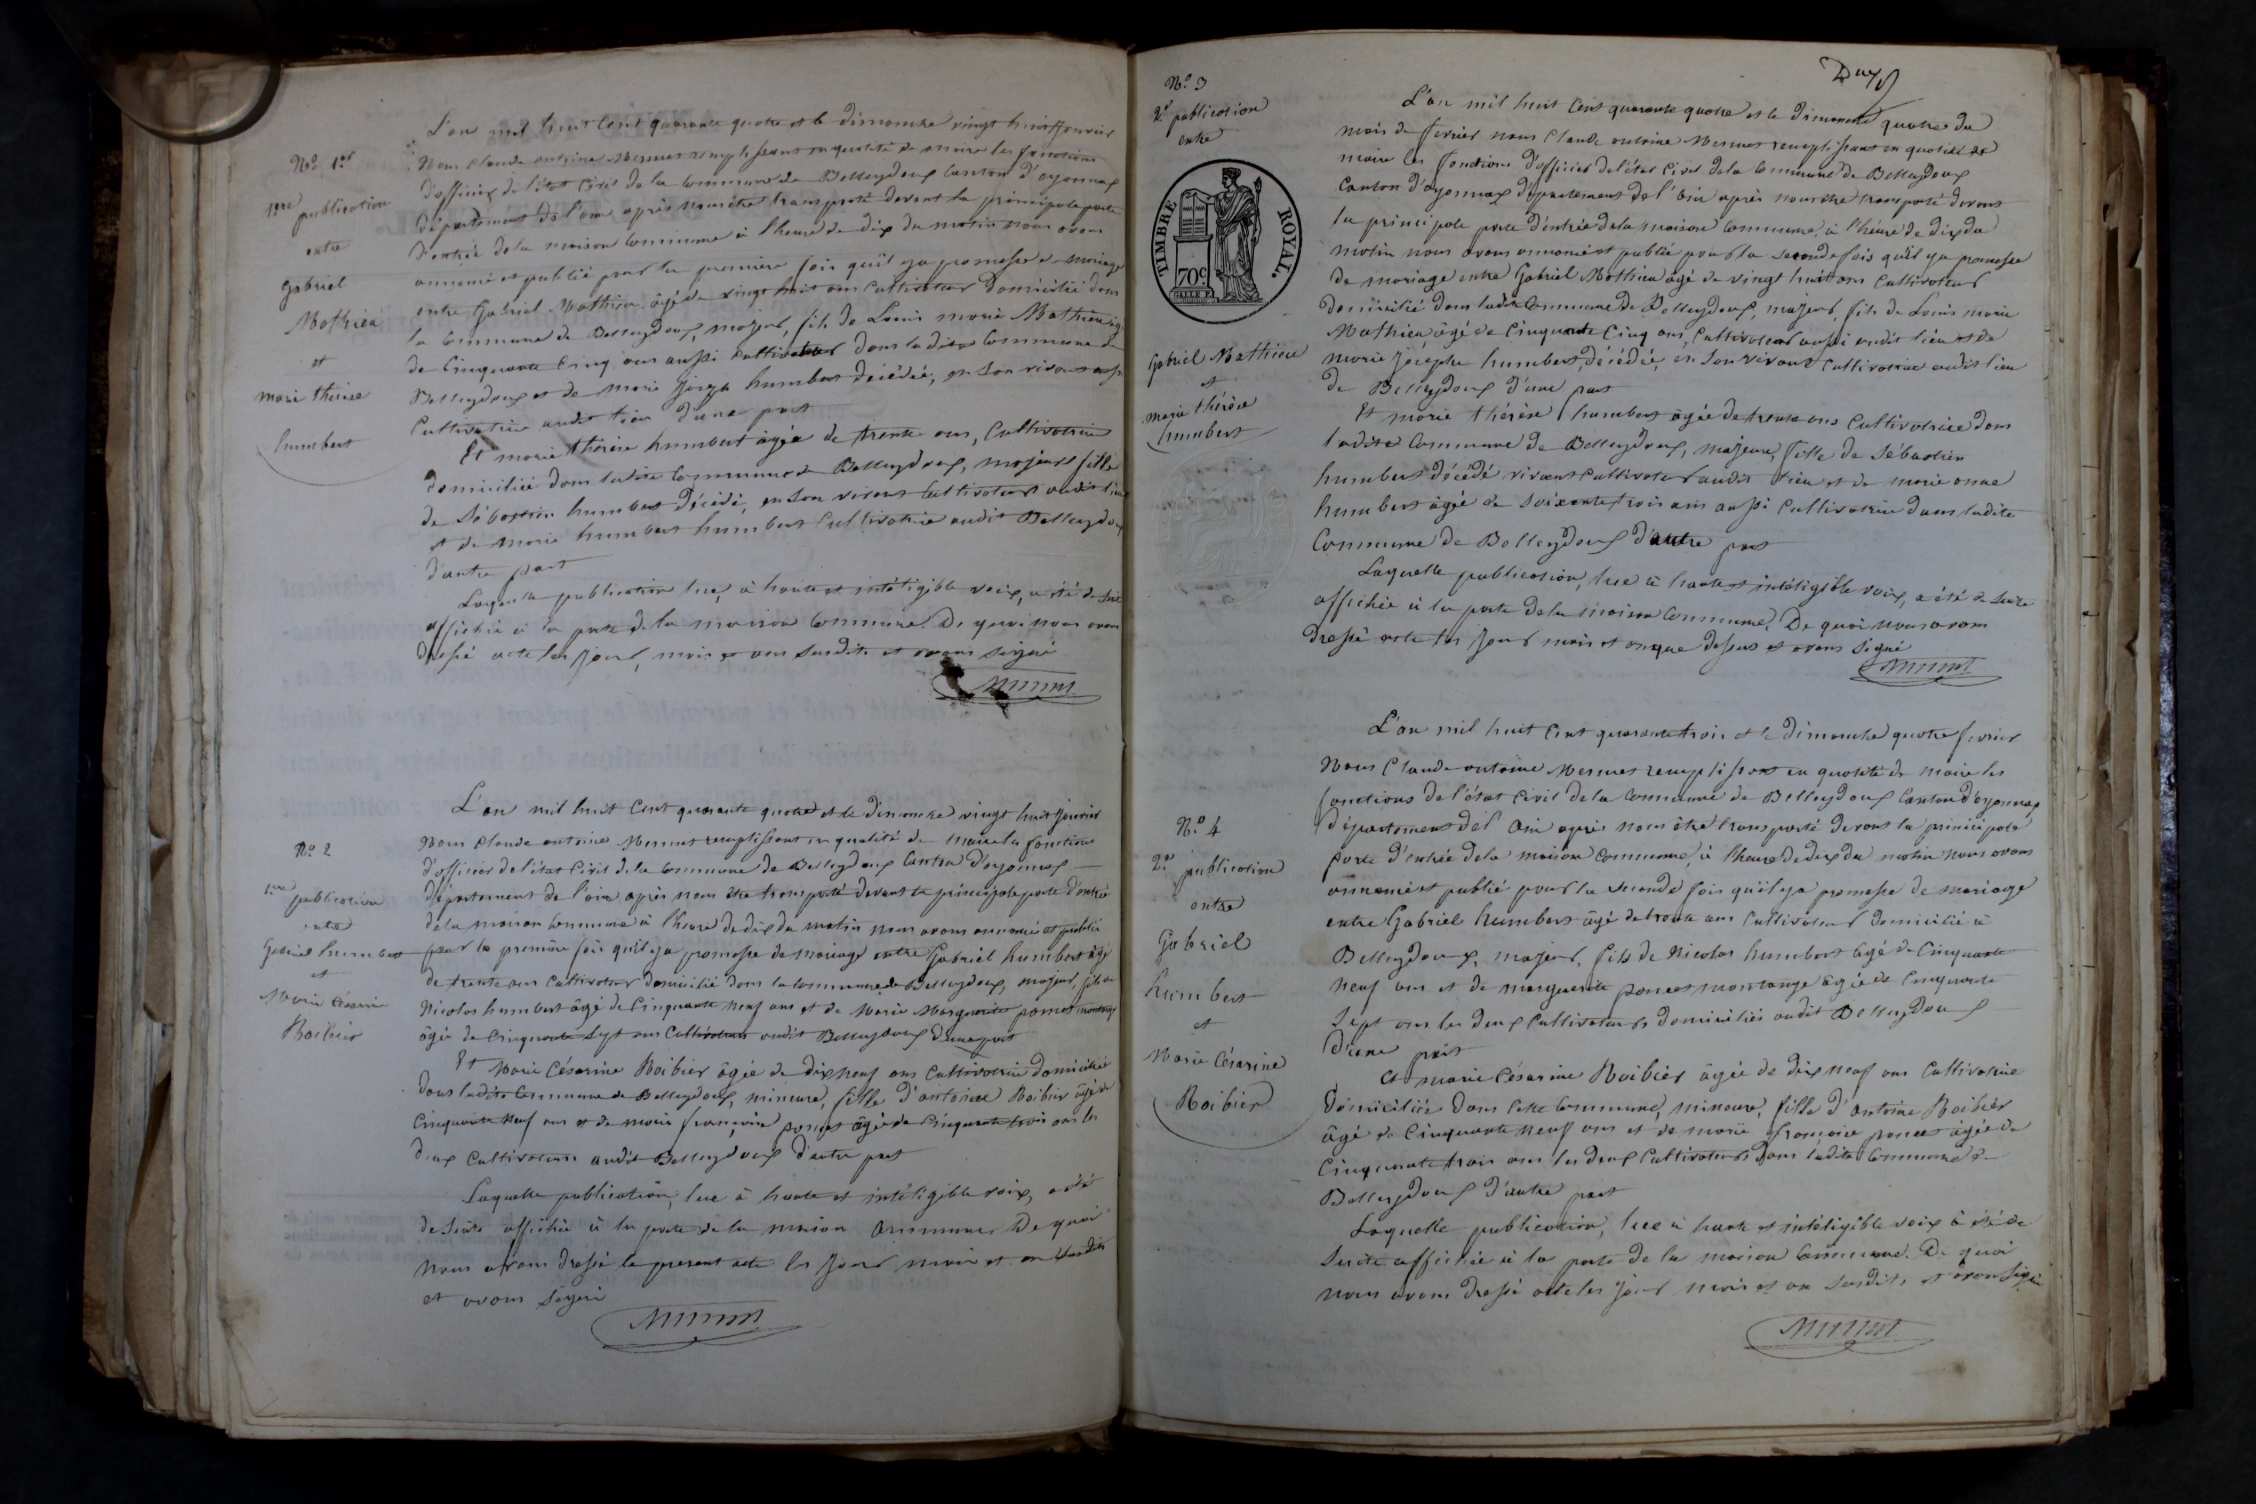 L'an mil huit cent quarante quatre et le dimanche vingt huit janvier
Nous Claude antoine Mermet remplissant en qualité de maire les fonctions
d'officier de l'état civil de la commune de Belleydoux canton d'oyonnax
département de l'ain après nous être transporté devant la principale porte
d'entrée de la maison commune à l'heure de dix du matin nous avons
annoncé et publié pour la première fois qu'il y a promesse de mariage
entre Gabriel Mathieu âgé de vingt huit ans cultivateur domicilié dans
la commune de Belleydoux, majeur, fils de Louis marie Mathieu âgé
de cinquante cinq ans aussi cultivateur dans ladite commune de
Belleydoux et de marie humbert décédée, en son vivant
cultivatrice audit lieu d'une part
Et marie thérèse humbert âgée de trente ans, cultivatrice
domiciliée dans ladite commune de Belleydoux, majeure fille
de Sébastien humbert décédé, en son vivant cultivateur audit lieu
et de marie humbert humbert cultivatrice audit Belleydoux
d'autre part
Laquelle publication lue, à haute et intéligible voix, a été de suite
affichée à la porte de la maison commune. De quoi nous avons
dressé acte les jour, mois et an susdits et avons signé
Mermet
No. 1er
1ère publication
entre
Gabriel
Mathieu
et
marie thérèse
humbert
L'an mil huit cent quarante quatre et le dimanche vingt huit janvier
Nous Claude antoine Mermet remplissant en qualité de maire les fonctions
d'officier de l'état civil de la commune de Belleydoux canton d'oyonnax
département de l'ain après nous être transporté devant la principale porte d'entrée
de la maison commune à l'heure de dix du matin nous avons annoncé et publié
pour la première fois qu'il y a promesse de mariage entre Gabriel humbert âgé
de trente ans cultivateur domicilié dans la commune de Belleydoux, majeur, fils de
Nicolas humbert âgé de cinquante neuf ans et de Marie Marguerite poncet montange
âgée de cinquante sept ans cultivateurs audit Belleydoux d'une part
Et Marie Césarine Roibier âgée de dix neuf ans cultivatrice domiciliée
dans ladite commune de Belleydoux, mineure, fille d'antoine Roibier âgé de
cinquante neuf ans et de marie françoise poncet âgée de cinquante trois ans les
deux cultivateurs audit Belleydoux d'autre part
Laquelle publication, lue à haute et intéligible voix, a été
de suite affichée à la porte de la maison commune. De quoi
nous avons dressé le présent acte les jour mois et an susdits
et avons signé
Mermet
No. 2
1ère publication
entre
Gabriel humbert
et
Marie Césarine
Roibier
Deux
No. 3
2e publication
entre
TIMBRE ROYAL.
70c.
Gabriel Mathieu
et
marie thérèse
humbert
L'an mil huit cent quarante quatre et le dimanche quatre du
mois de février nous Claude antoine Mermet remplissant en qualité de
maire les fonctions d'officier de l'état civil de la commune de Belleydoux
canton d'oyonnax département de l'ain après nous être transporté devant
la principale porte d'entrée de la maison commune, à l'heure de dix du
matin nous avons annoncé et publié pour la seconde fois qu'il y a promesse
de mariage entre Gabriel Mathieu âgé de vingt huit ans cultivateur
domicilié dans ladite commune de Belleydoux, majeur, fils de Louis marie
Mathieu âgé de cinquante cinq ans, cultivateur aussi audit lieu et de
marie josephe humbert, décédée, en son vivant cultivatrice audit lieu
de Belleydoux d'une part
Et marie thérèse humbert âgée de trente ans cultivatrice dans
ladite commune de Belleydoux, majeure, fille de Sébastien
humbert décédé vivant cultivateur audit lieu et de marie anne
humbert âgée de soixante trois ans aussi cultivatrice dans ladite
commune de Belleydoux d'autre part
Laquelle publication, lue à haute et intéligible voix, a été de suite
affichée à la porte de la maison commune. De quoi nous avons
dressé acte les jour mois et an que dessus et avons signé
Mermet
L'an mil huit cent quarante trois et le dimanche quatre février
Nous Claude antoine Mermet remplissant en qualité de maire les
fonctions de l'état civil de la commune de Belleydoux canton d'oyonnax
département de l'ain après nous être transporté devant la principale
porte d'entrée de la maison commune, à l'heure de dix du matin nous avons
annoncé et publié pour la seconde fois qu'il y a promesse de mariage
entre Gabriel humbert âgé de trente ans cultivateur domicilié à
Belleydoux, majeur, fils de Nicolas humbert âgé de cinquante
neuf ans et de marguerite poncet montange âgée de cinquante
sept ans les deux cultivateurs domiciliés audit Belleydoux
d'une part
Et marie Césarine Roibier âgée de dix neuf ans cultivatrice
domiciliée dans cette commune, mineure, fille d'antoine Roibier
âgé de cinquante neuf ans et de marie françoise poncet âgée de
cinquante trois ans les deux cultivateurs dans ladite commune de
Belleydoux d'autre part
Laquelle publication, lue à haute et intéligible voix à été de
suite affichée à la porte de la maison commune. De quoi
nous avons dressé acte les jour mois et an susdits et avons signé
Mermet
No. 4
2e publication
entre
Gabriel
humbert
et
Marie Césarine
Roibier